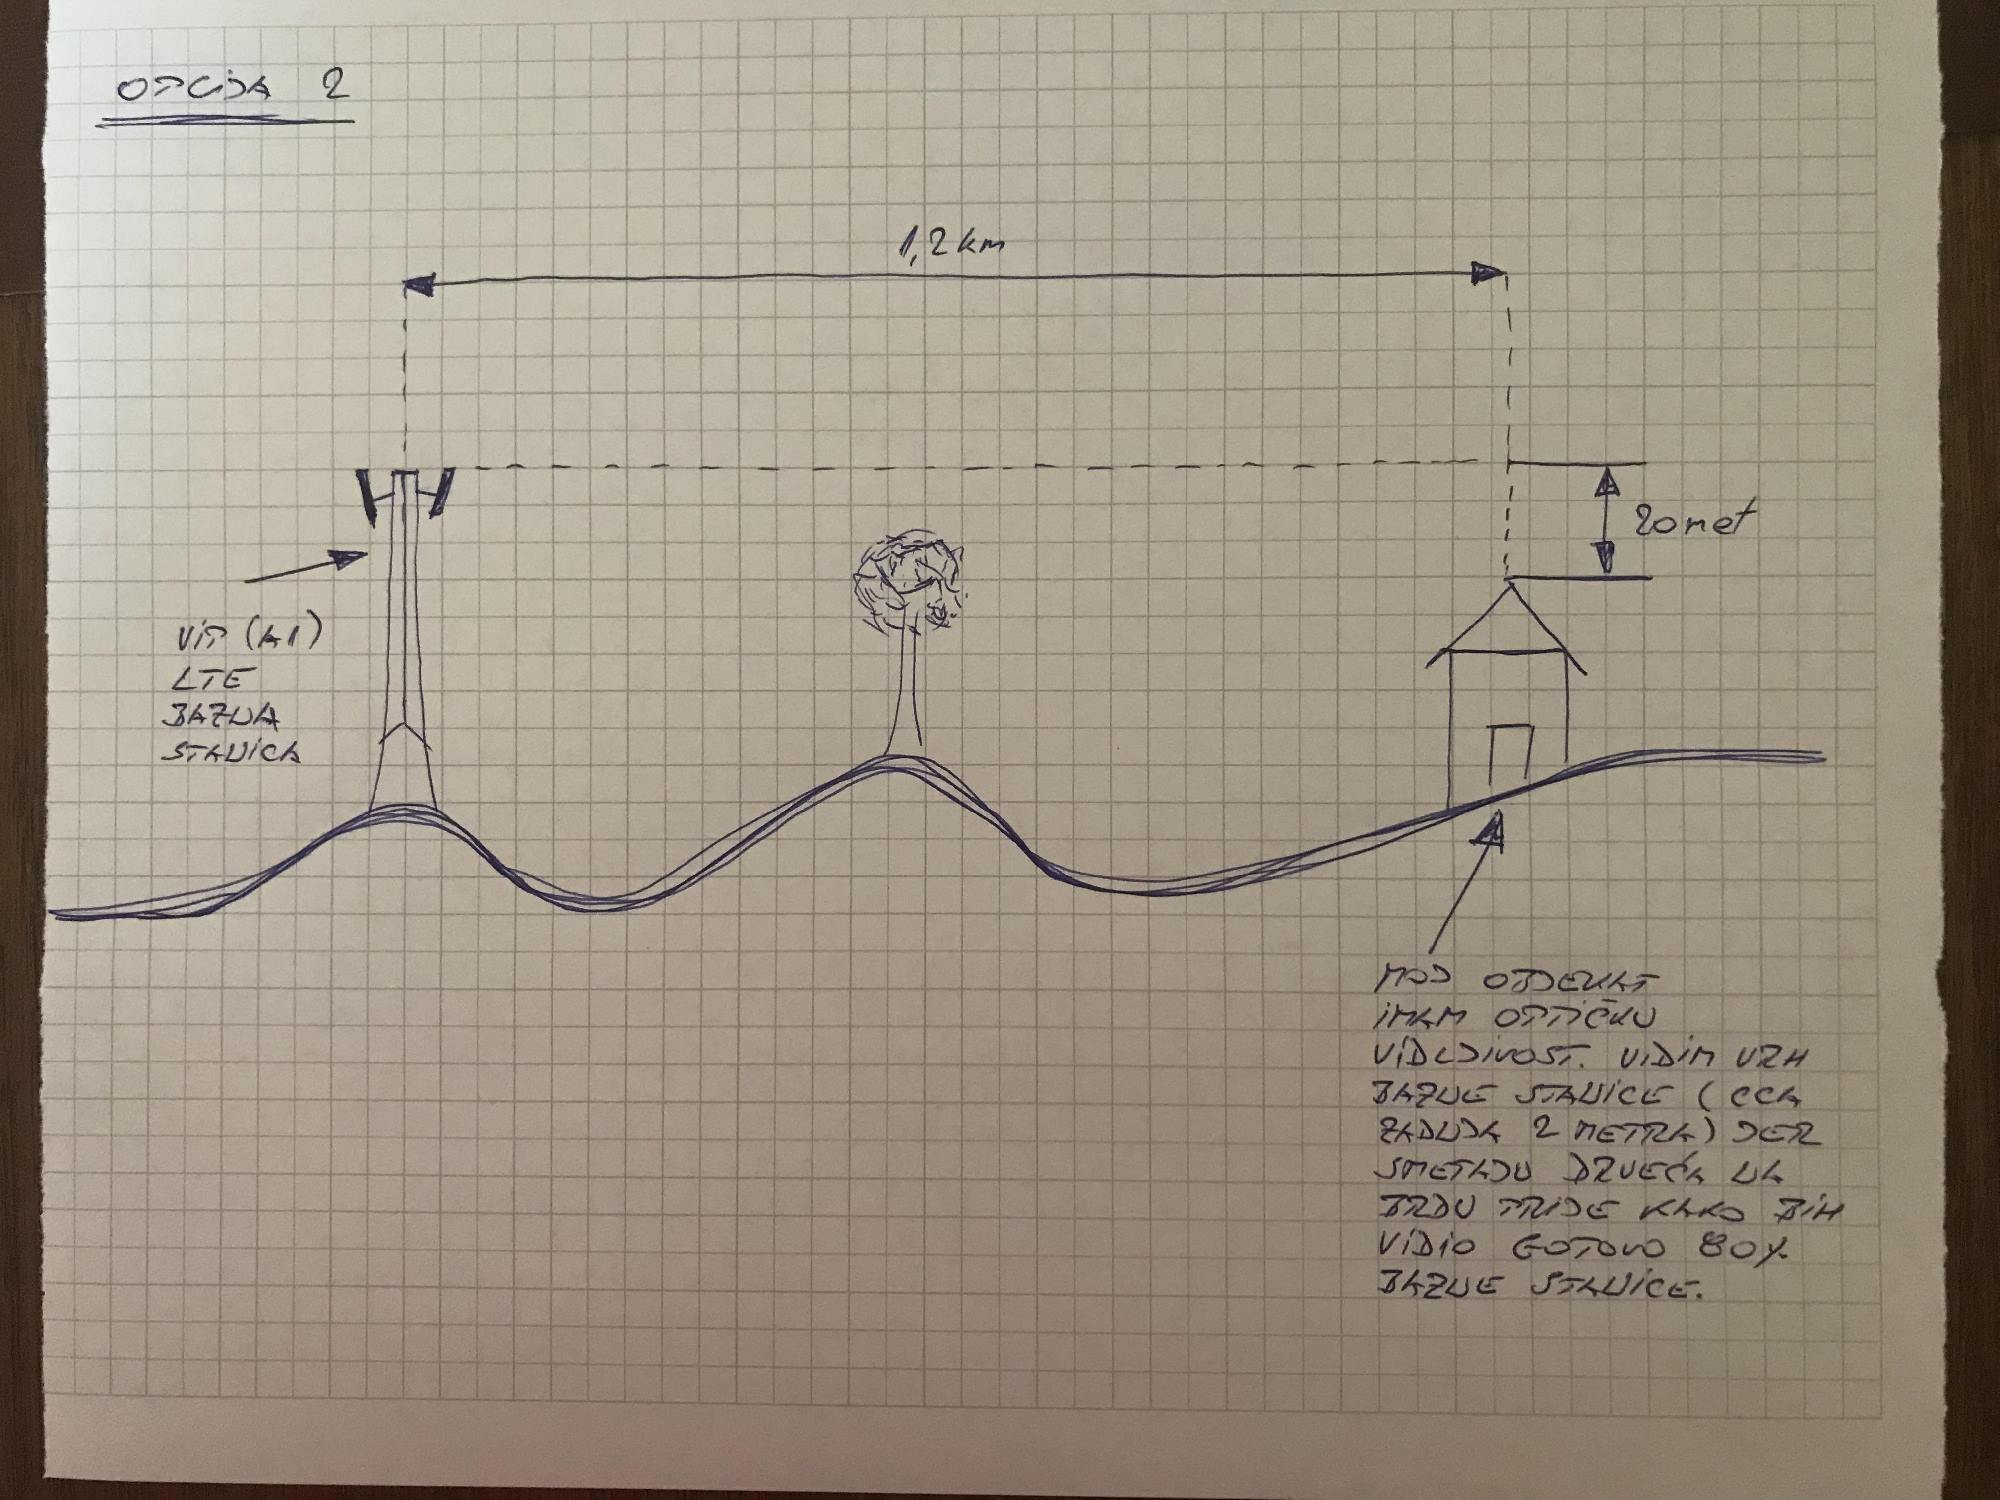 OPCIJA 2
1,2 km
20 met
VIP (A1)
LTE
BAZNA
STANICA
MOJ OBJEKAT
IMAM OPTIČKU
VIDLJIVOST. VIDIM VRH
BAZNE STANICE (CCA
ZADNJA 2 METRA) JER
SMETAJU DRVEĆA NA
BRDU PRIJE KAKO BIH
VIDIO GOTOVO 80%
BAZNE STANICE.